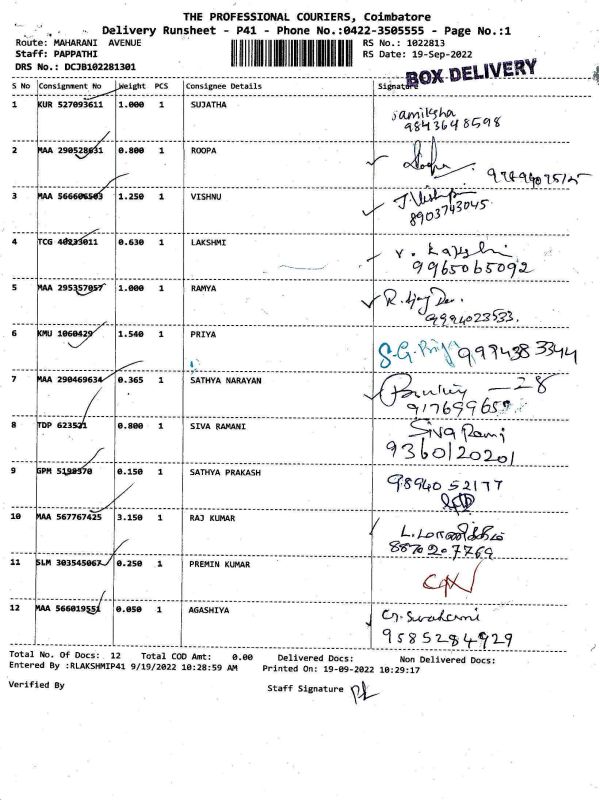 THE PROFESSIONAL COURIERS, Coimbatore
Delivery Runsheet - P41 - Phone No.:0422-3505555 - Page No.:1
Route: MAHARANI AVENUE RS No.: 1022813
Staff: PAPPATHI RS Date: 19-Sep-2022
DRS No.: DCJB102281301
BOX DELIVERY
S No Consignment No Weight PCS Consignee Details Signature
1 KUR 527093611 1.000 1 SUJATHA
samiksha
9843648598
2 MAA 290528631 0.800 1 ROOPA
Roopa
3 MAA 566606503 1.250 1 VISHNU
8903743045
4 TCG 40233011 0.630 1 LAKSHMI
9965065092
5 MAA 295357057 1.000 1 RAMYA
9994023533.
6 KMU 1060429 1.540 1 PRIYA
S.G. Priya 9994383344
7 MAA 290469634 0.365 1 SATHYA NARAYAN
8 TDP 623521 0.800 1 SIVA RAMANI
Siva Ramj
9360120201
9 GPM 5198370 0.150 1 SATHYA PRAKASH
9894052177
10 MAA 567767425 3.150 1 RAJ KUMAR
8870207769
11 SLM 303545067 0.250 1 PREMIN KUMAR
12 MAA 566019551 0.050 1 AGASHIYA
9585284929
Total No. Of Docs: 12 Total COD Amt: 0.00 Delivered Docs: Non Delivered Docs:
Entered By :RLAKSHMIP41 9/19/2022 10:28:59 AM Printed On: 19-09-2022 10:29:17
Verified By Staff Signature